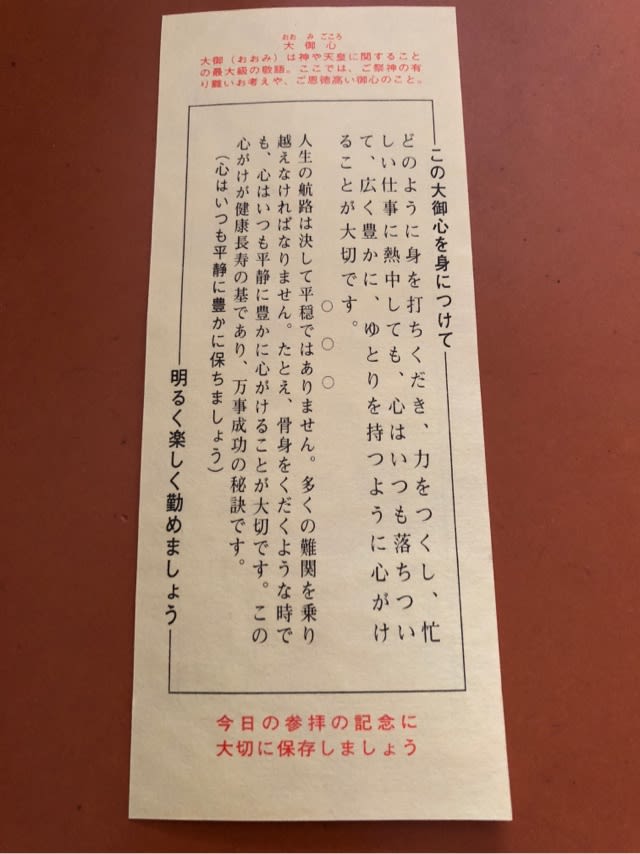 おおみごころ
大御心
大御（おおみ）は神や天皇に関すること
の最大級の敬語。ここでは、ご祭神の有
り難いお考えや、ご恩徳高い御心のこと。
―この大御心を身につけて―
どのように身を打ちくだき、力をつくし、忙
しい仕事に熱中しても、心はいつも落ちつい
て、広く豊かに、ゆとりを持つように心がけ
ることが大切です。
○○○
人生の航路は決して平穏ではありません。多くの難関を乗り
越えなければなりません。たとえ、骨身をくだくような時で
も、心はいつも平静に豊かに心がけることが大切です。この
心がけが健康長寿の基であり、万事成功の秘訣です。
（心はいつも平静に豊かに保ちましょう）
―明るく楽しく勤めましょう―
今日の参拝の記念に
大切に保存しましょう